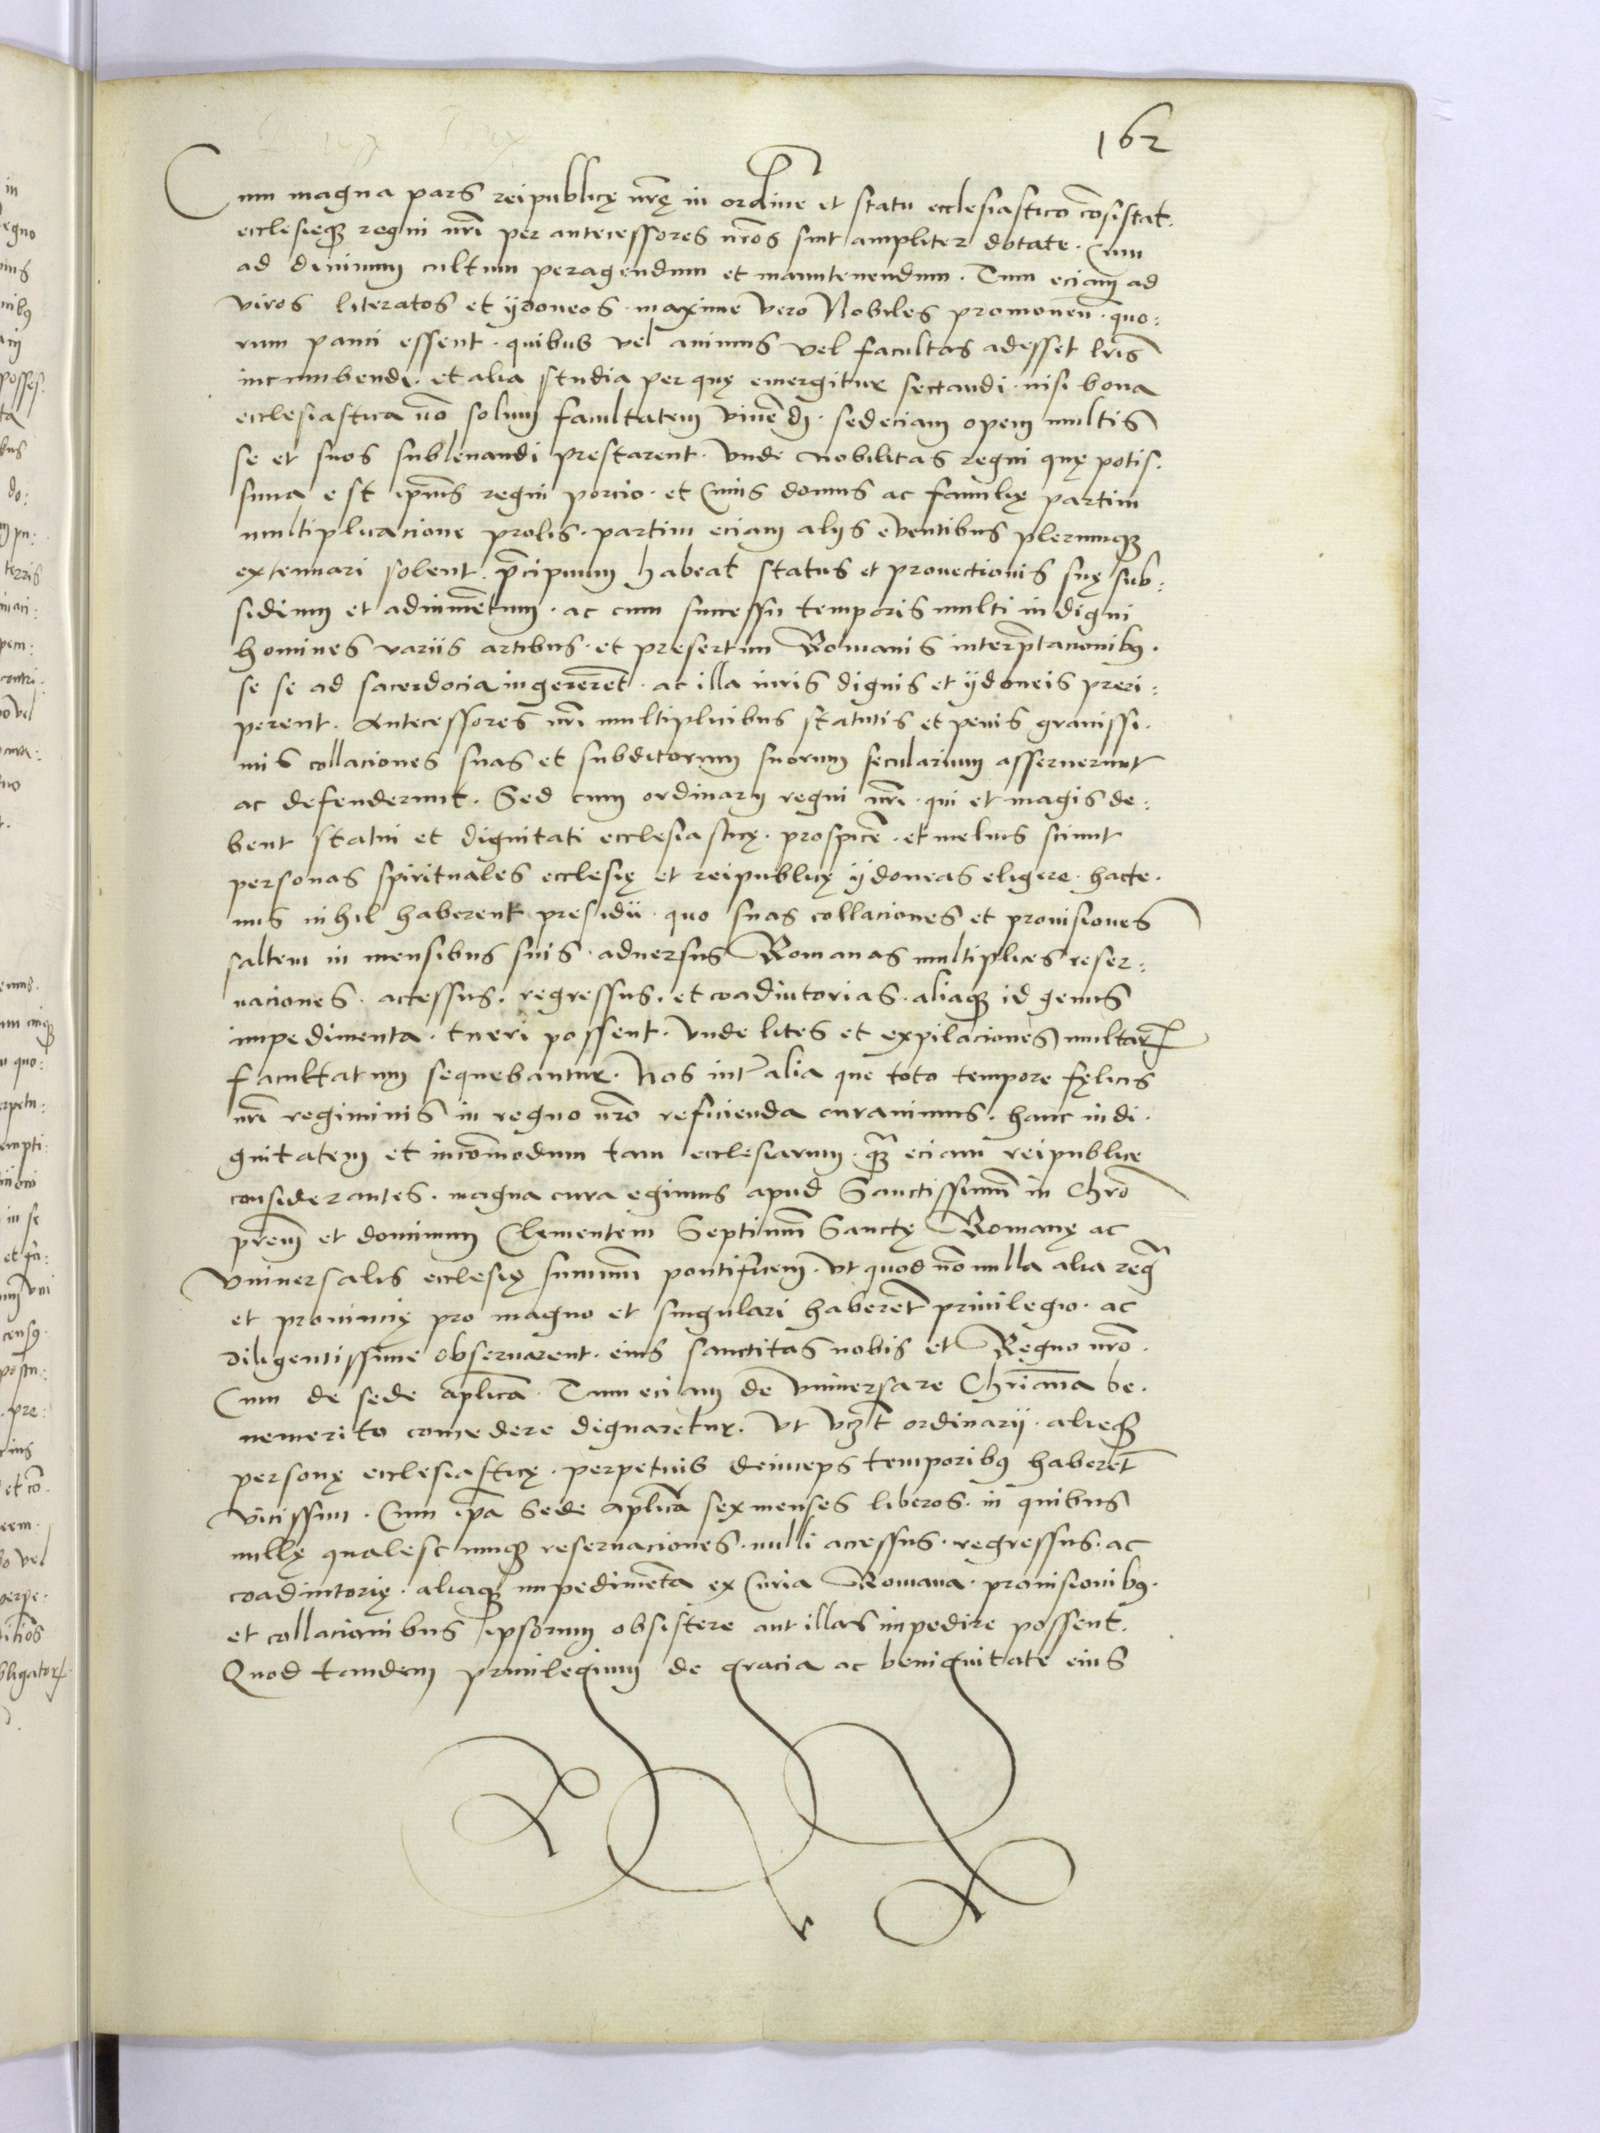 162
Cum magna pars reipublicę nr̄ę in ordine et statu ecclesiastico cōsistat.
ecclesieqȝ regni nr̄i per antecessores nr̄os sint ampliter dotate. Cum
ad diuinum cultum peragendum et manutenendum. Tum eciam ad
viros literatos et ydoneos. maxime vero Nobiles promouen̄. quo:
rum pauci essent. quibus vel animus vel facultas adesset lr̄is
incumbendi. et alia studia per quę emergitur sectandi. nisi bona
ecclesiastica nō solum facultatem viuēdi. sed eciam opem multis
se et suos subleuandi prestarent. Vnde nobilitas regni quę potis.
sima est ip̄ius regni porcio. et cuius domus ac familię partim
multiplicacione prolis. partim eciam alijs euentibus plerumqȝ
extenuari solent. p̄cipuum habeat status et prouectionis suę sub:
sidium et adiumētum. ac cum successu temporis multi indigni
homines variis artibus. et presertim Romanis interp̄tacionibꝰ.
se se ad sacerdocia ingererēt. ac illa viris dignis et ydoneis preri:
perent. Antecessores nr̄i multiplicibus statutis et penis grauissi.
mis collaciones suas et subditorum suorum secularium asseruerunt
ac defenderunt. Sed cum ordinarij regni nr̄i. qui et magis de:
bent statui et dignitati ecclesiasticę. prospicē. et melius sciunt
personas spirituales ecclesię et reipublicę ydoneas eligere. hacte.
nus nihil haberent presidii. quo suas collaciones et prouisiones
saltem in mensibus suis. aduersus Romanas multiplices reser:
uaciones. accessus. regressus. et coadiutorias. aliaqȝ id genus
impedimenta. tueri possent. Vnde lites et expilaciones multarꝝ
facultatum sequebantur. Nos int̄ alia que toto tempore fęlicis
nr̄i regiminis in regno nr̄o reficienda curauimus. hanc indi.
gnitatem et incōmodum tam ecclesiarum. qȝ̄ eciam reipublicę
considerantes. magna cura egimus apud Sanctissimū in Chr̄o
pr̄em et dominum Clementem Septimū Sanctę Romanę ac
Vniuersalis ecclesię summū pontificem. Vt quod nōnulla alia regn̄
et prouincię pro magno et singulari haberēt priuilegio. ac
diligentissime obseruarent. eius sanctitas nobis et Regno nr̄o.
Cum de sede aplica. Tum eciam de Vniuersa re Chr̄iana be.
nemerito concedere dignaretur. Vt vzt ordinarii. alieqȝ
personę ecclesiasticę. perpetuis deinceps temporibꝰ haberēt
vicissim. Cum ip̄a Sede aplica sex menses liberos. in quibus
nullę qualescunqȝ reseruaciones. nulli accessus. regressus. ac
coadiutorię. aliaqȝ impedimēta ex Curia Romana. prouisionibꝰ.
et collacionibus ipsorum obsistere aut illas impedire possent.
Quod tandem priuilegium de gracia ac benignitate eius